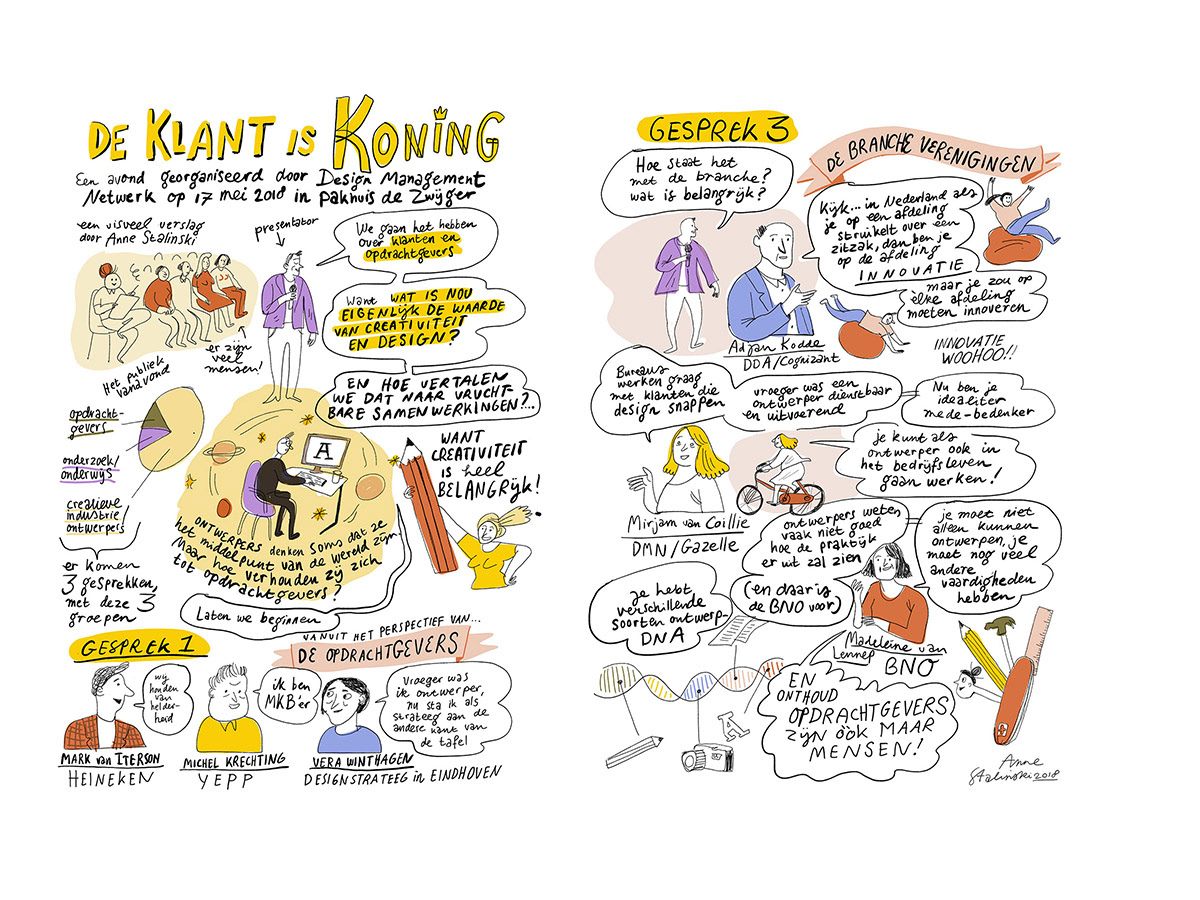 DE KLANT IS KONING
Een avond georganiseerd door Design Management
Netwerk op 17 mei 2018 in pakhuis de Zwijger
een visueel verslag
door Anne Stalinski
presentator
We gaan het hebben
over klanten en
opdrachtgevers
Want WAT IS NOU
EIGENLIJK DE WAARDE
VAN CREATIVITEIT
EN DESIGN?
er zijn
veel
mensen!
Het publiek
vanavond
EN HOE VERTALEN
WE DAT NAAR VRUCHT-
BARE SAMENWERKINGEN?...
opdracht-
gevers
onderzoek/
onderwijs
creatieve
industrie
ontwerpers
er komen
3 gesprekken,
met deze 3
groepen
A
WANT
CREATIVITEIT
IS HEEL
BELANGRIJK!
ONTWERPERS denken soms dat ze
het middelpunt van de wereld zijn
Maar hoe verhouden zij zich
tot opdrachtgevers?
Laten we beginnen
GESPREK 1
VANUIT HET PERSPECTIEF VAN...
DE OPDRACHTGEVERS
wij
houden
van
helder-
heid
MARK van ITERSON
HEINEKEN
ik ben
MKB'er
MICHEL KRECHTING
YEPP
Vroeger was
ik ontwerper,
nu sta ik als
strateeg aan de
andere kant van
de tafel
VERA WINTHAGEN
DESIGNSTRATEEG in EINDHOVEN
GESPREK 3
DE BRANCHE VERENIGINGEN
Hoe staat het
met de branche?
wat is belangrijk?
Kijk... in Nederland als
je op een afdeling
struikelt over een
zitzak, dan ben je
op de afdeling
INNOVATIE
maar je zou op
elke afdeling
moeten innoveren
INNOVATIE
WOOHOO!!
Adjan Kodde
DDA/Cognizant
Bureaus
werken graag
met klanten die
design snappen
vroeger was een
ontwerper dienstbaar
en uitvoerend
Nu ben je
idealiter
mede-bedenker
je kunt als
ontwerper ook in
het bedrijfsleven
gaan werken!
Mirjam van Coillie
DMN/Gazelle
ontwerpers weten
vaak niet goed
hoe de praktijk
er uit zal zien
(en daar is
de BNO voor)
je moet niet
alleen kunnen
ontwerpen, je
moet nog veel
andere
vaardigheden
hebben
Madeleine van
Lennep
BNO
Je hebt
verschillende
soorten ontwerp-
DNA
A
EN
ONTHOUD
OPDRACHTGEVERS
ZIJN ÓÓK MAAR
MENSEN!
Anne
Stalinski 2018